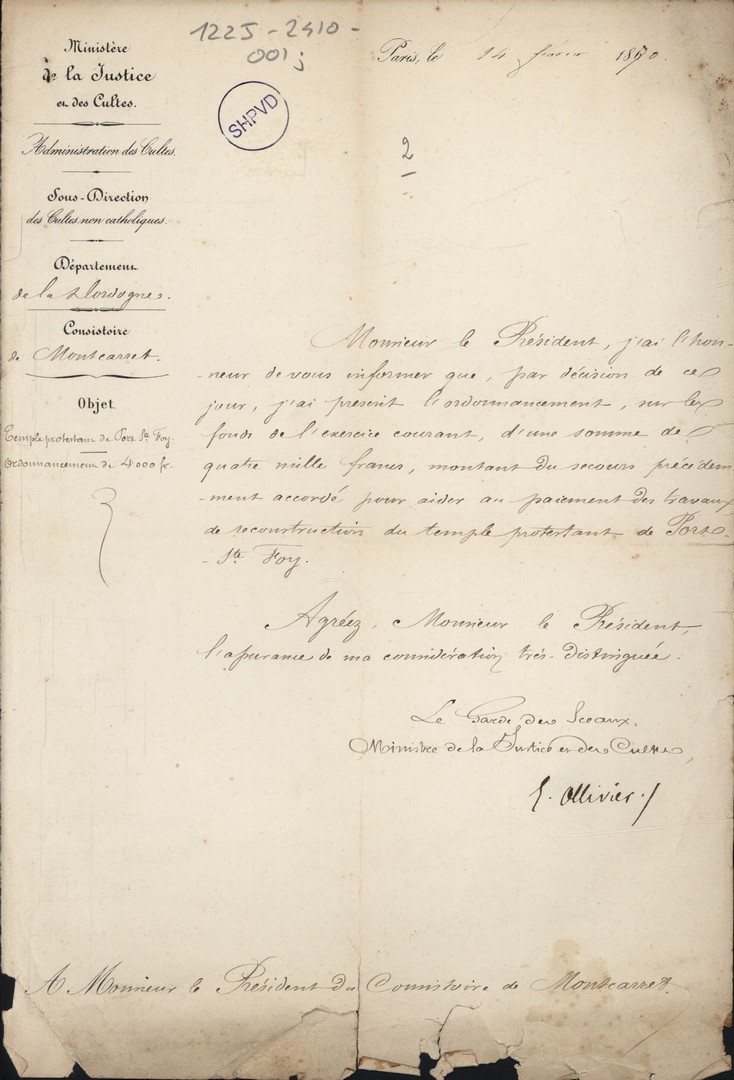 1225-2410-
001j
SHPVD
2
Ministère
de la Justice
et des Cultes.
Administration des Cultes.
Sous-Direction
des Cultes non catholiques.
Département
de la Dordogne.
Consistoire
de Montcarret.
Objet
Temple protestant de Port Ste Foy.
Ordonnancement de 4000 fr.
Paris, le 14 février 1870.
Monsieur le Président, j'ai l'hon-
-neur de vous informer que, par décision de ce
jour, j'ai prescrit l'ordonnancement, sur les
fonds de l'exercice courant, d'une somme de
quatre mille francs, montant du secours précédem-
-ment accordé pour aider au paiement des travaux
de reconstruction du temple protestant de Port-
-Ste Foy.
Agréez, Monsieur le Président,
l'assurance de ma considération très-distinguée.
Le Garde des Sceaux,
Ministre de la Justice et des Cultes,
E. Ollivier
A Monsieur le Président du Consistoire de Montcarret.